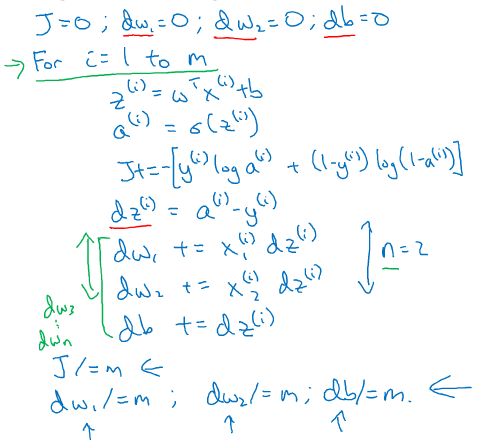 J=0 ; dw₁=0 ; dw₂=0 ; db=0
→ For i = 1 to m
z⁽ⁱ⁾ = wᵀx⁽ⁱ⁾+b
a⁽ⁱ⁾ = σ(z⁽ⁱ⁾)
J+=-[y⁽ⁱ⁾ log a⁽ⁱ⁾ + (1-y⁽ⁱ⁾) log(1-a⁽ⁱ⁾)]
dz⁽ⁱ⁾ = a⁽ⁱ⁾-y⁽ⁱ⁾
dw₁ += x₁⁽ⁱ⁾ dz⁽ⁱ⁾
dw₂ += x₂⁽ⁱ⁾ dz⁽ⁱ⁾
n=2
db += dz⁽ⁱ⁾
dw₃
⋮
dwₙ
J /= m ←
dw₁ /= m ; dw₂ /= m ; db /= m. ←
↑ ↑ ↑